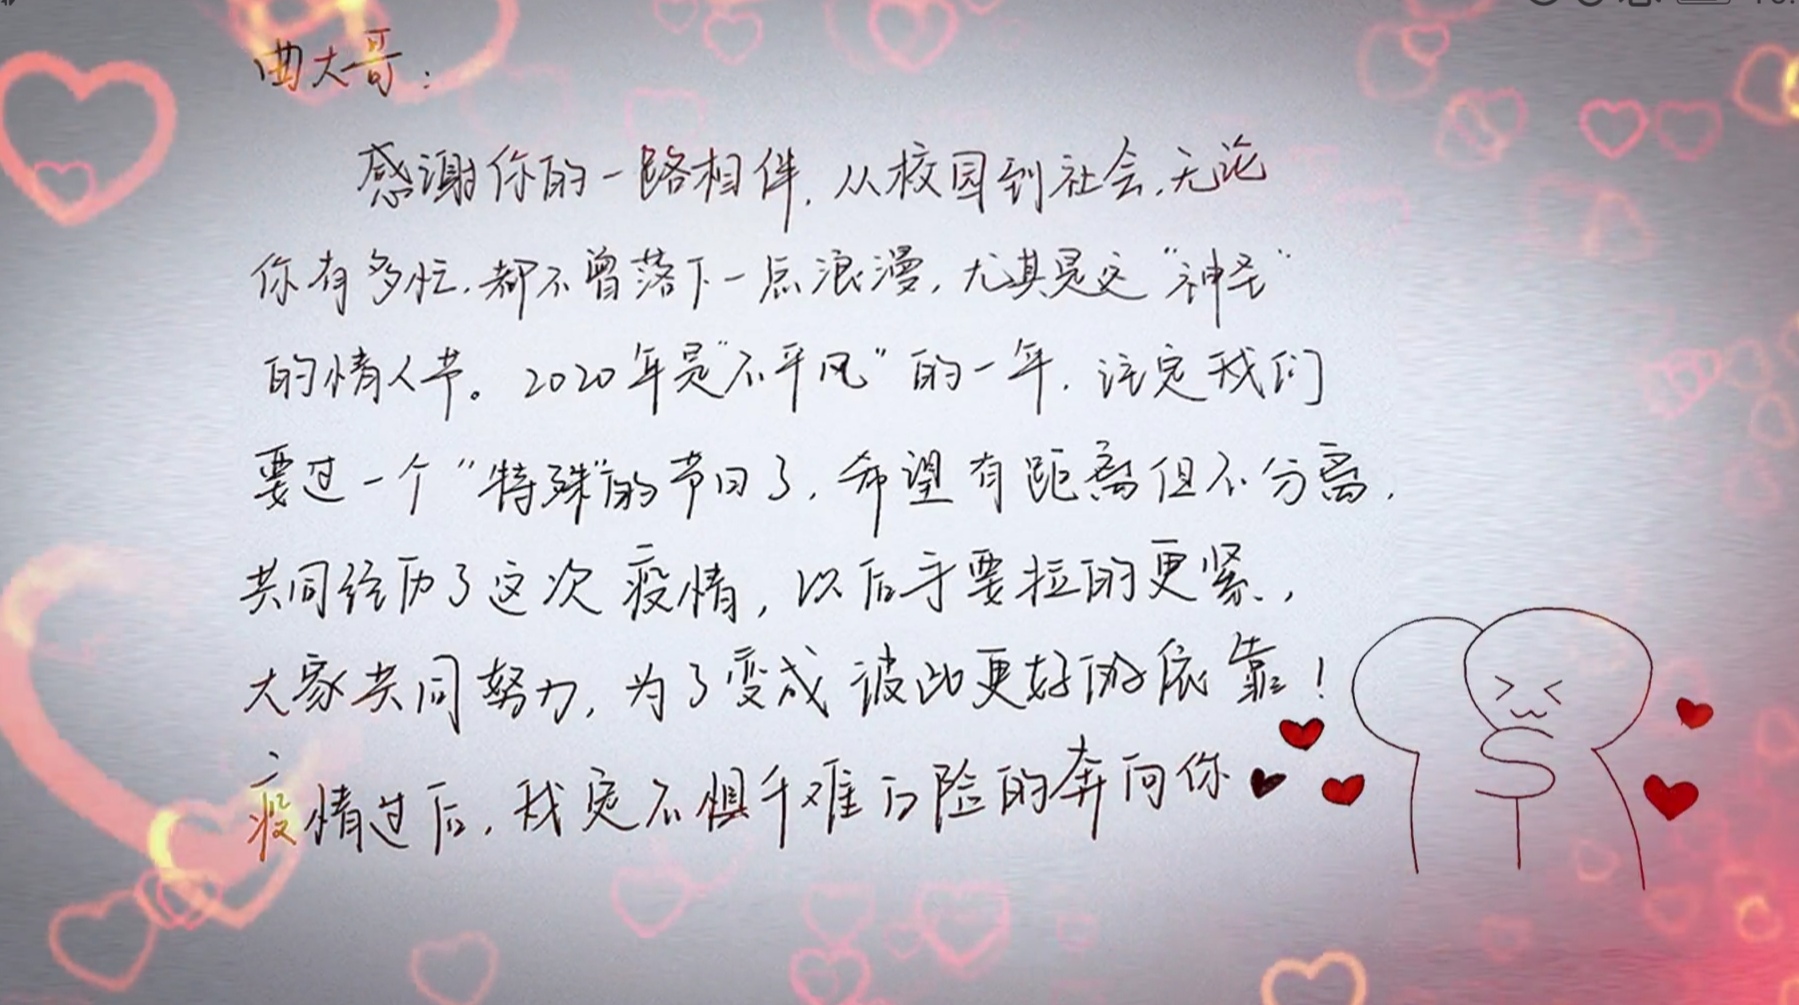 曲大哥：
感谢你的一路相伴，从校园到社会，无论
你有多忙，都不曾落下一点浪漫，尤其是这“神圣”
的情人节。2020年是“不平凡”的一年，注定我们
要过一个“特殊”的节日了，希望有距离但不分离，
共同经历了这次疫情，以后手要拉的更紧，
大家共同努力，为了变成彼此更好的依靠！
疫情过后，我定不惧千难万险的奔向你